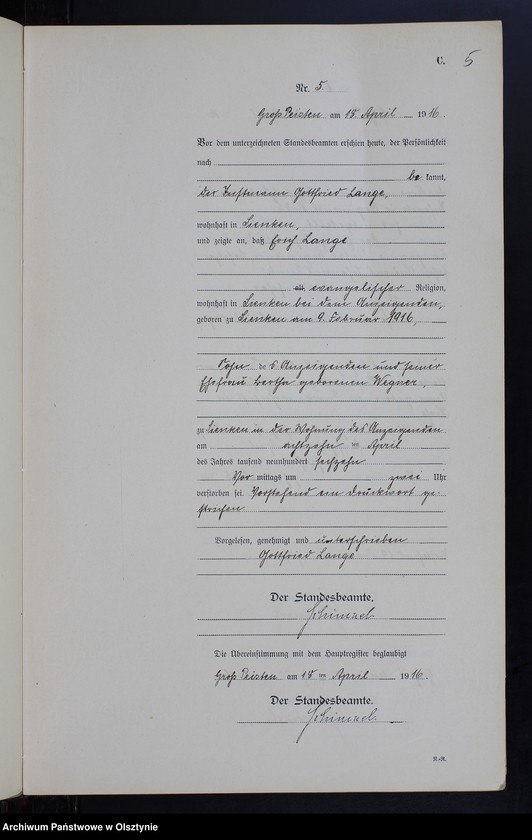 C. 5
Nr. 5
Groß Peisten am 18 April 1916.
Vor dem unterzeichneten Standesbeamten erschien heute, der Persönlichkeit
nach
be kannt,
der Instmann Gottfried Lange,
wohnhaft in Lienken,
und zeigte an, daß Erich Lange
alt, evangelischer Religion,
wohnhaft in Lienken bei dem Anzeigenden,
geboren zu Lienken am 9. Februar 1916,
Sohn des Anzeigenden und seiner
Ehefrau Bertha geborenen Wegner,
zu Lienken in der Wohnung des Anzeigenden
am achtzehn ten April
des Jahres tausend neunhundert sechzehn
Vor mittags um zwei Uhr
verstorben sei. Vorstehend ein Druckwort ge-
strichen.
Vorgelesen, genehmigt und unterschrieben
Gottfried Lange
Der Standesbeamte.
Die Übereinstimmung mit dem Hauptregister beglaubigt
Groß Peisten am 18 ten April 1916.
Der Standesbeamte.
Archiwum Państwowe w Olsztynie